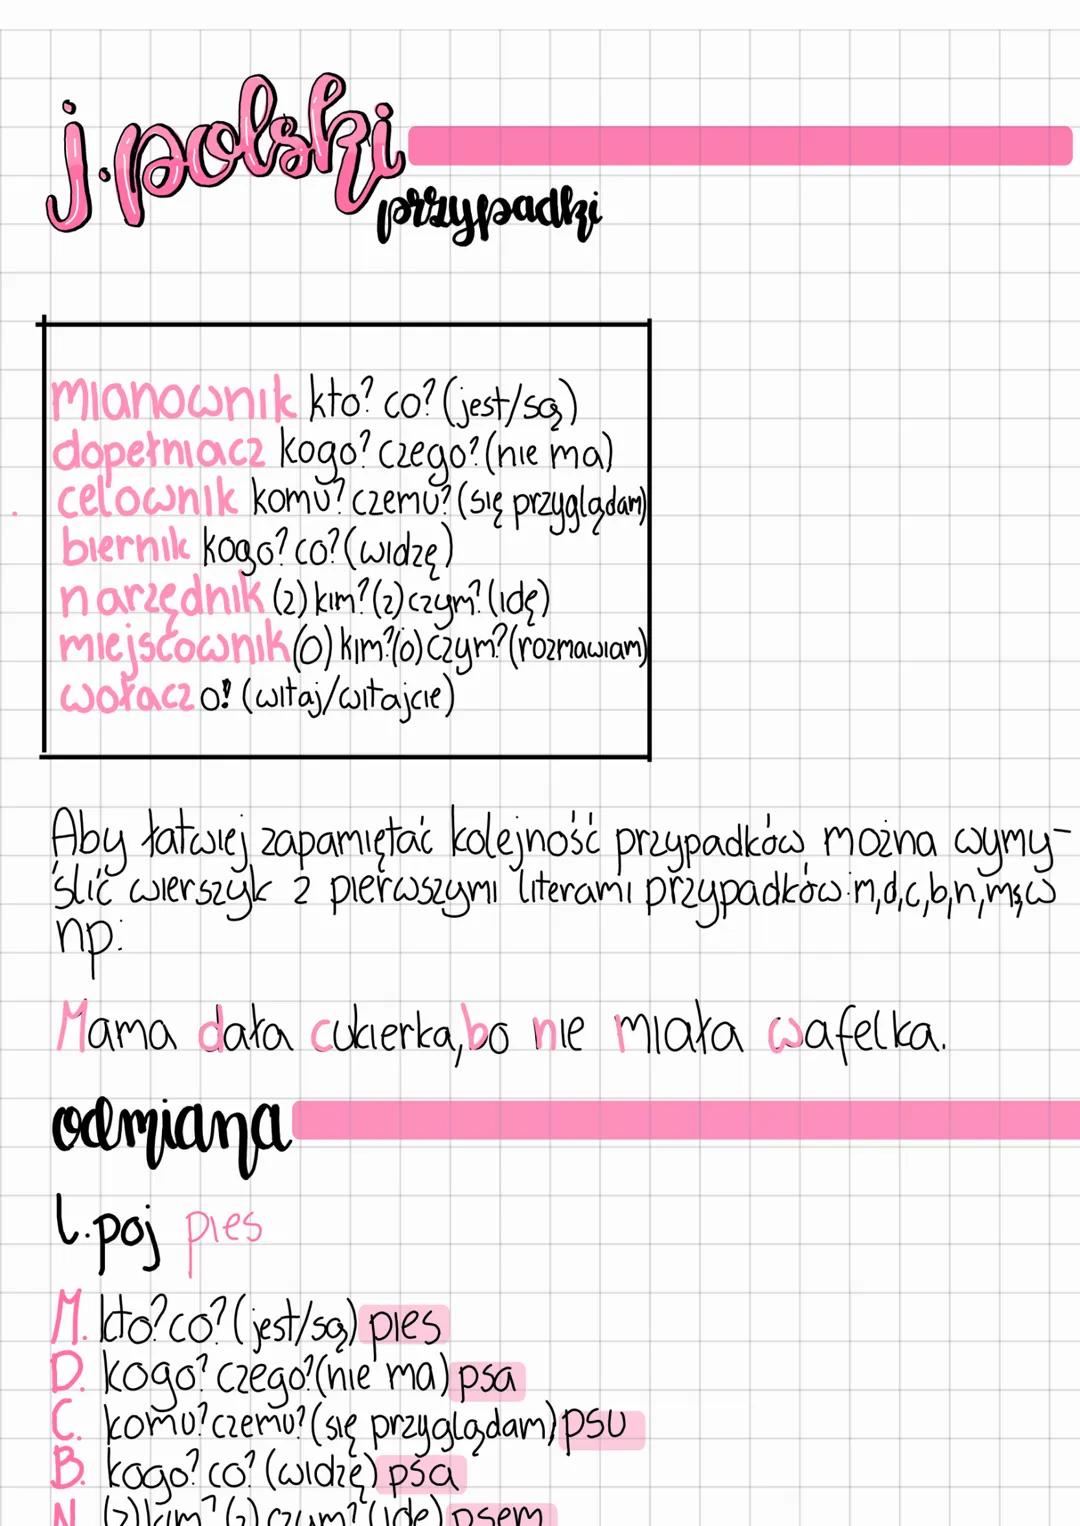 j.polski
przypadki
mianownik kto? co? (jest/są)
dopełniacz kogo? czego? (nie ma)
celownik komu? czemu? (się przyglądam)
biernik kogo? co? (widzę)
narzędnik (z) kim? (z) czym? (idę)
miejscownik (o) kim? (o) czym? (rozmawiam)
wołacz o! (witaj/witajcie)
Aby łatwiej zapamiętać kolejność przypadków można wymy-
ślić wierszyk z pierwszymi literami przypadków: m,d,c,b,n,ms,w
np:
Mama dała cukierka, bo nie miała wafelka.
odmiana
l.poj pies
M. kto? co? (jest/są) pies
D. kogo? czego? (nie ma) psa
C. komu? czemu? (się przyglądam) psu
B. kogo? co? (widzę) psa
N. (z) kim? (z) czym? (idę) psem